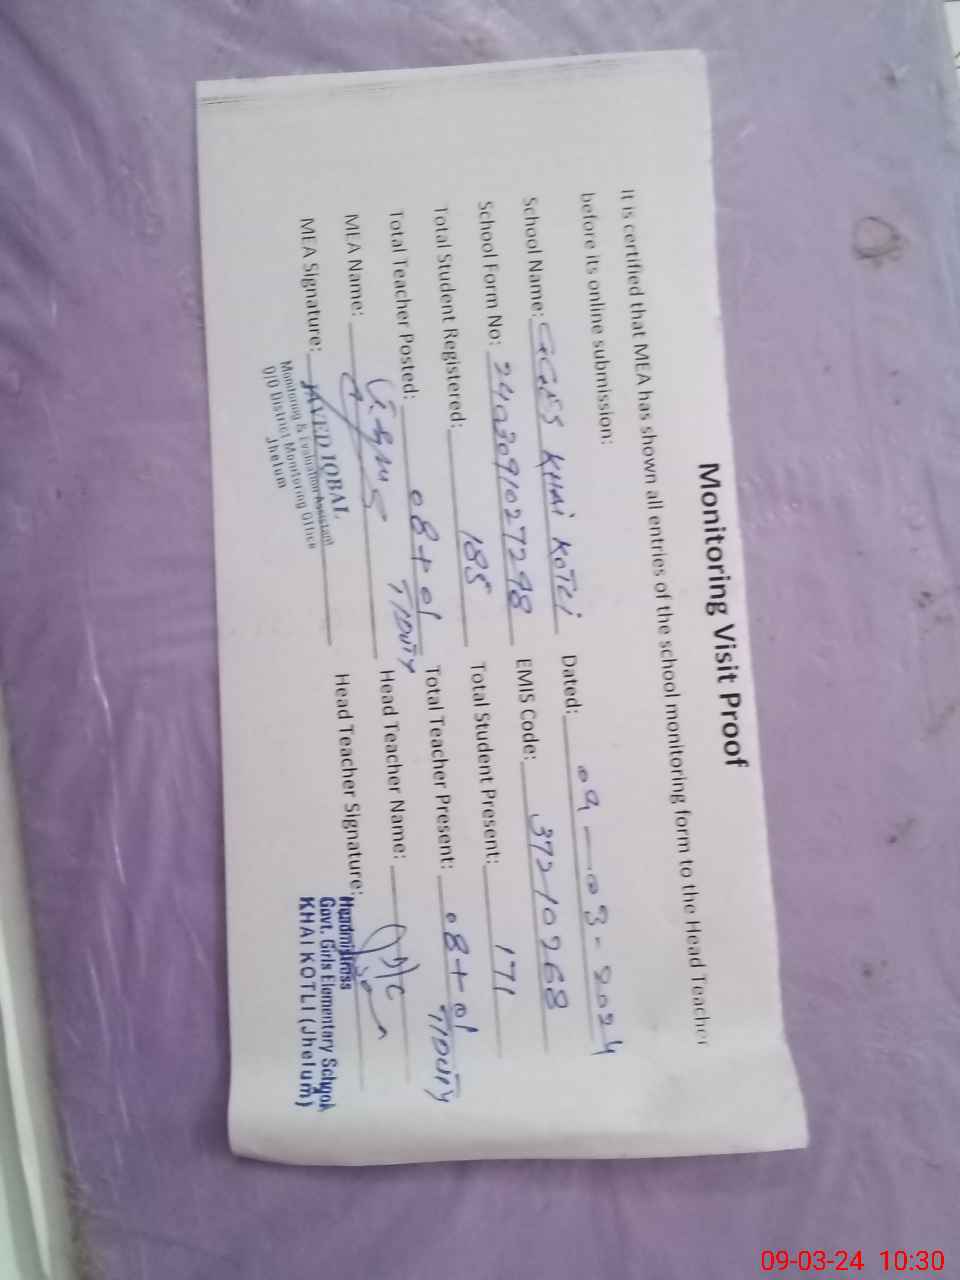 Monitoring Visit Proof
It is certified that MEA has shown all entries of the school monitoring form to the Head Teacher
before its online submission:
School Name: GGES KHAI KOTLI Dated: 09-03-2024
School Form No: 2403091027298 EMIS Code: 37210268
Total Student Registered: 185 Total Student Present: 171
Total Teacher Posted: 08+01 T/DUTY Total Teacher Present: 08+01 T/DUTY
MEA Name: Head Teacher Name:
MEA Signature: Head Teacher Signature:
JAVED IQBAL
Monitoring & Evaluation Assistant
O/O District Monitoring Office
Jhelum
Headmistress
Govt. Girls Elementary School
KHAI KOTLI (Jhelum)
09-03-24 10:30